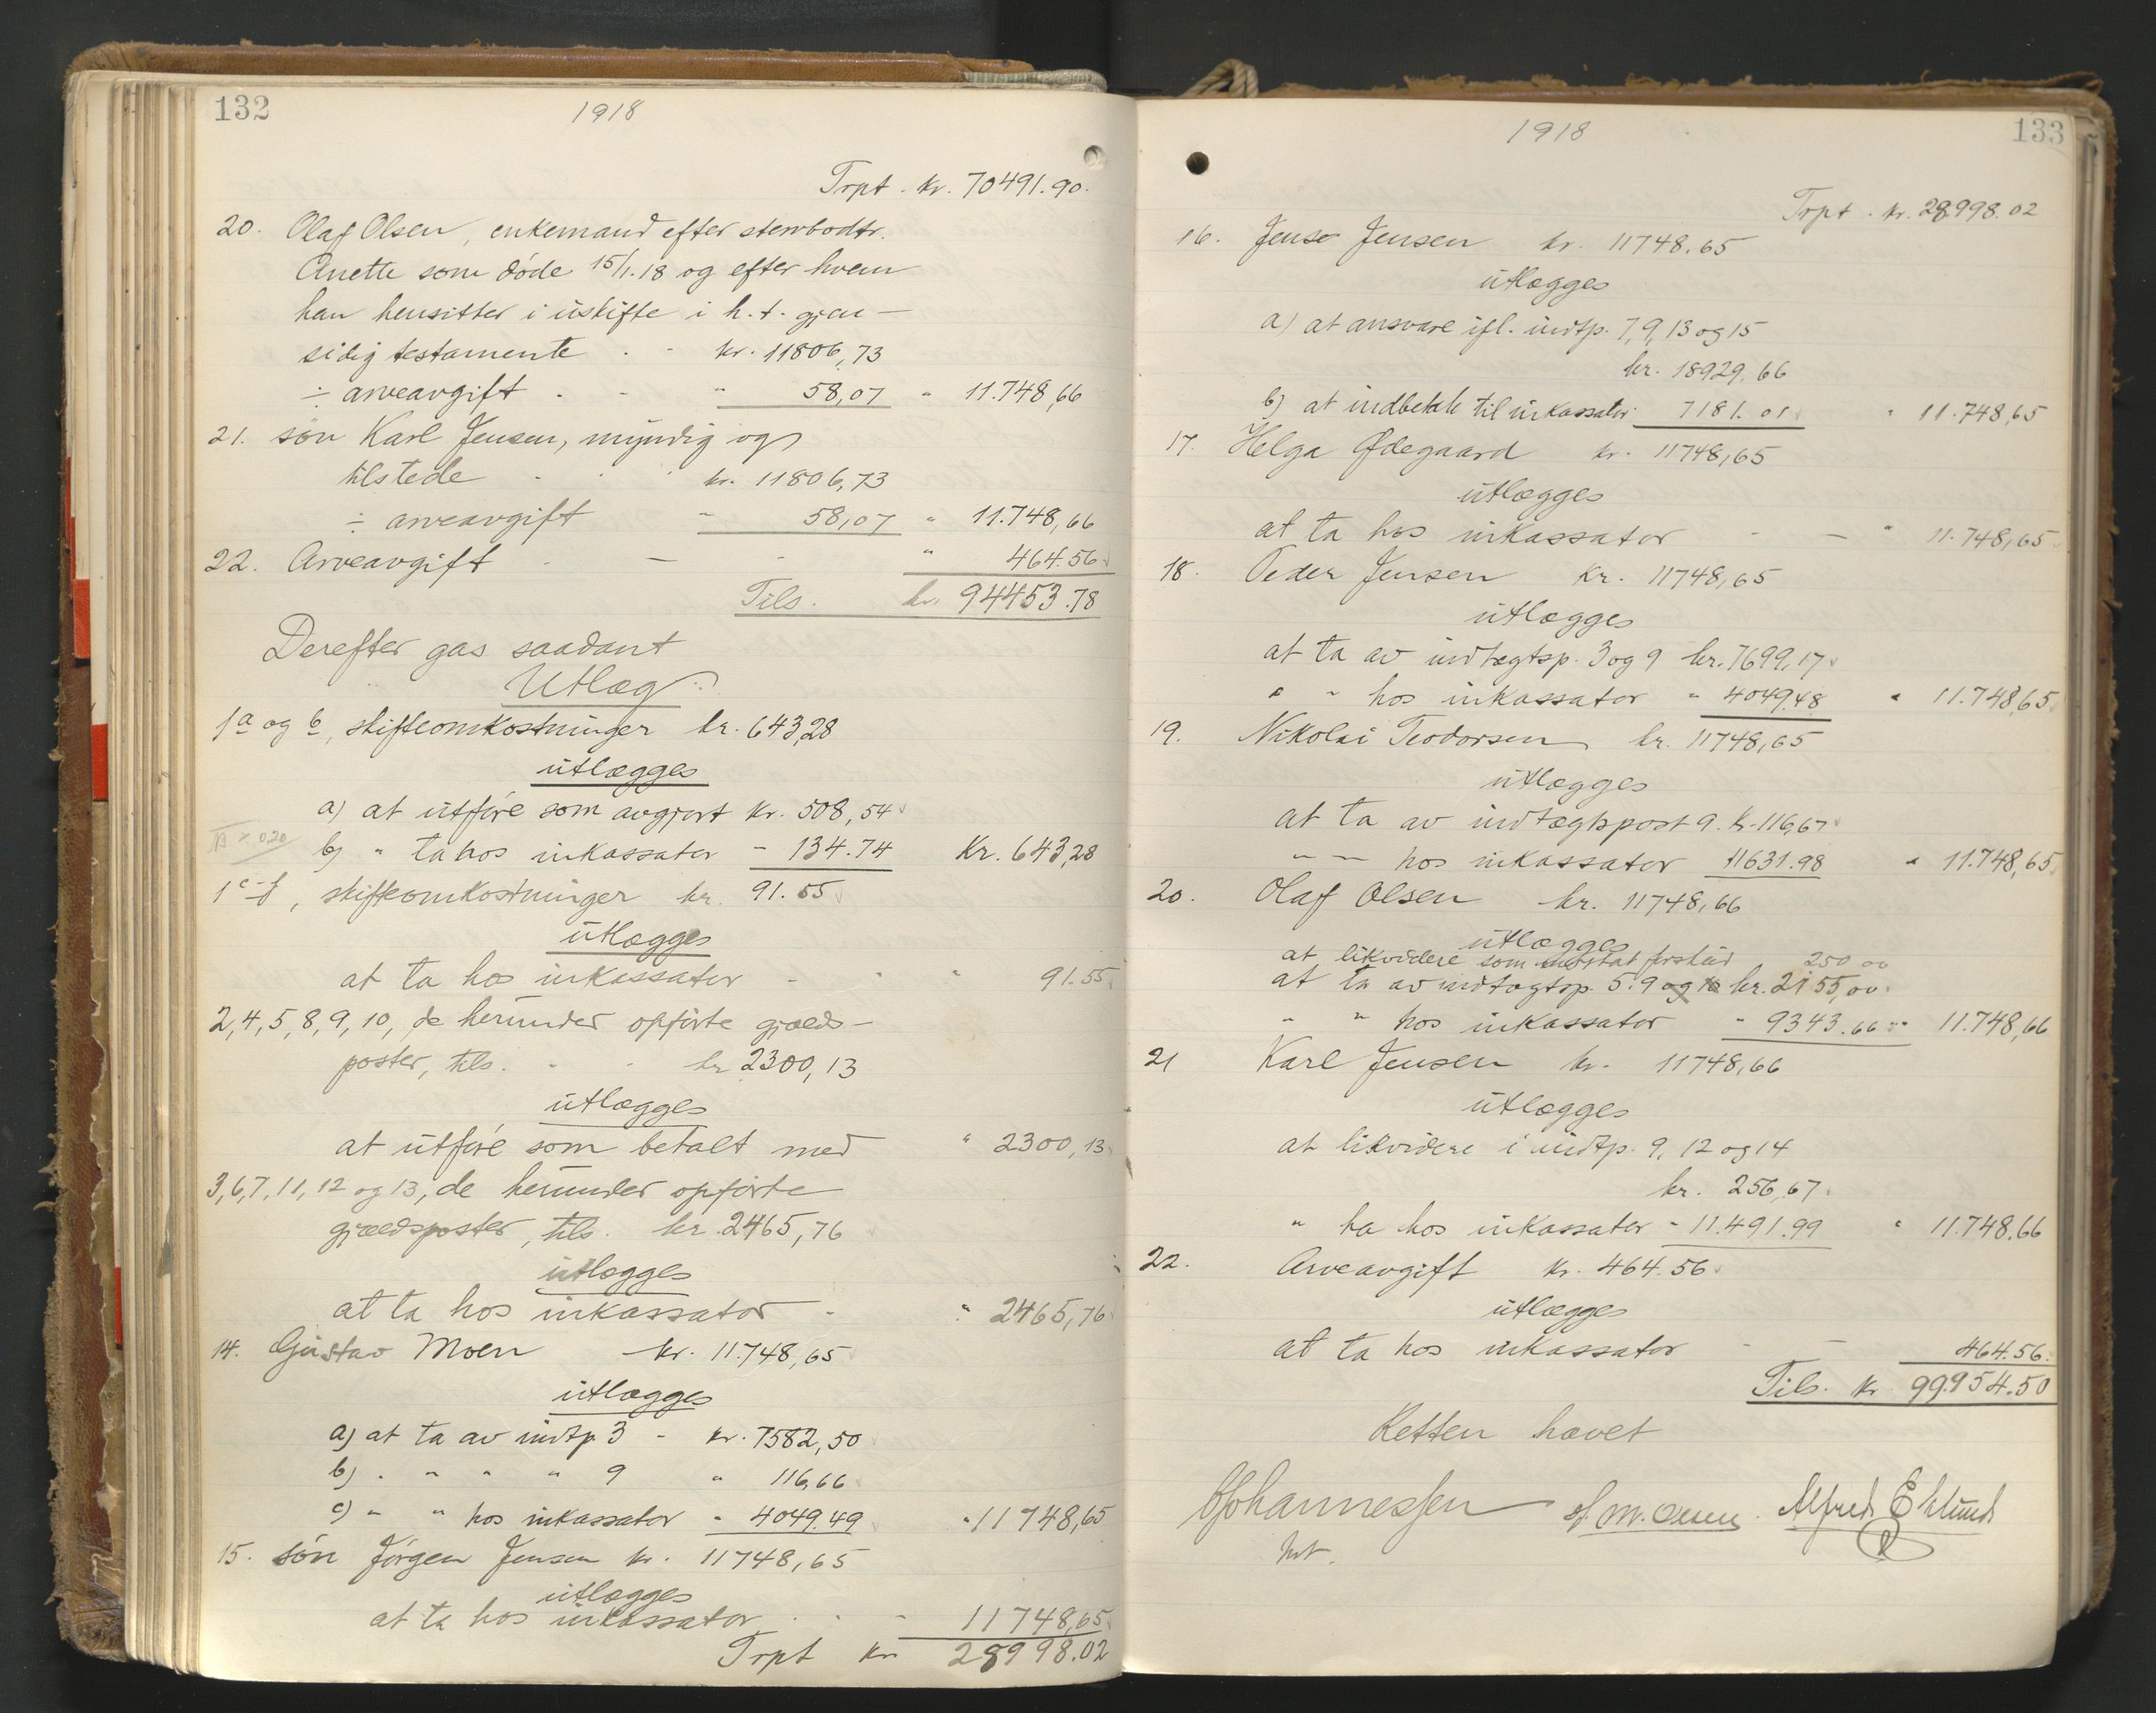 132
1918
Trpt. kr. 70491.90.
20. Olaf Olsen, enkemand efter stervbodtr.
Anette som døde 15/1.18 og efter hvem
han hensitter i uskifte i h.t. gjen-
sidig testamente . - kr. 11806,73
÷ arveavgift . - " 58,07 " 11.748,66
21. søn Karl Jensen, myndig og
tilstede . . kr. 11806,73
÷ arveavgift - 58,07 " 11.748,66
22. Arveavgift . — - " 464.56
Tils. kr. 94453.78
Derefter gas saadant
Utlæg:
1a og b, skifteomkostninger kr. 643,28
utlægges
a) at utføre som avgjort kr. 508,54
b) " ta hos inkassator - 134.74 Kr. 643,28
1c-f, skifteomkostninger kr. 91.55
utlægges
at ta hos inkassator - " " 91.55
2,4,5,8,9,10, de herunder opførte gjælds-
poster, tils. . . kr 2300,13
utlægges
at utføre som betalt med " 2300,13
3,6,7,11,12 og 13, de herunder opførte
gjældsposter, tils. kr. 2465,76
utlægges
at ta hos inkassator - " 2465,76
14. Gustav Moen kr. 11.748,65
utlægges
a) at ta av indtp. 3 - kr. 7582,50
b) . " " " 9 " 116,66
c) " " hos inkassator " 4049.49 " 11748,65
15. søn Jørgen Jensen kr. 11748,65
utlægges
at ta hos inkassator . . - 11748,65
Trpt kr 28998.02
133
1918
Trpt. kr. 28998.02
16. Jense Jensen kr. 11748.65
utlægges
a) at ansvare ifl. indtp. 7, 9, 13 og 15
kr. 18929.66
b) at indbetale til inkassator 7181.01 " 11.748,65
17. Helga Ødegaard kr. 11748,65
utlægges
at ta hos inkassator - — " 11.748,65
18. Peder Jensen Kr. 11748,65
utlægges
at ta av indtægtsp. 3 og 9 kr. 7699,17
" " hos inkassator " 4049.48 " 11.748,65
19. Nikolai Teodorsen kr. 11748,65
utlægges
at ta av indtægtspost 9. kr. 116,67
" — hos inkassator 11631.98 " 11.748,65
20. Olaf Olsen kr. 11748,66
utlægges
at likvidere som forskud 250 00
at ta av indtægtsp. 5.9 og 10 kr. 2155,00
" " hos inkassator " 9343.66 " 11.748,66
21 Karl Jensen kr. 11748,66
utlægges
at likvidere i indtp. 9, 12 og 14
kr. 256,67
" ta hos inkassator " 11.491.99 " 11.748,66
22. Arveavgift kr. 464.56
utlægges
at ta hos inkassator - — 464.56
Tils. kr 99.954.50
Retten hævet
Johannessen M. Olsen. Alfred Eklund